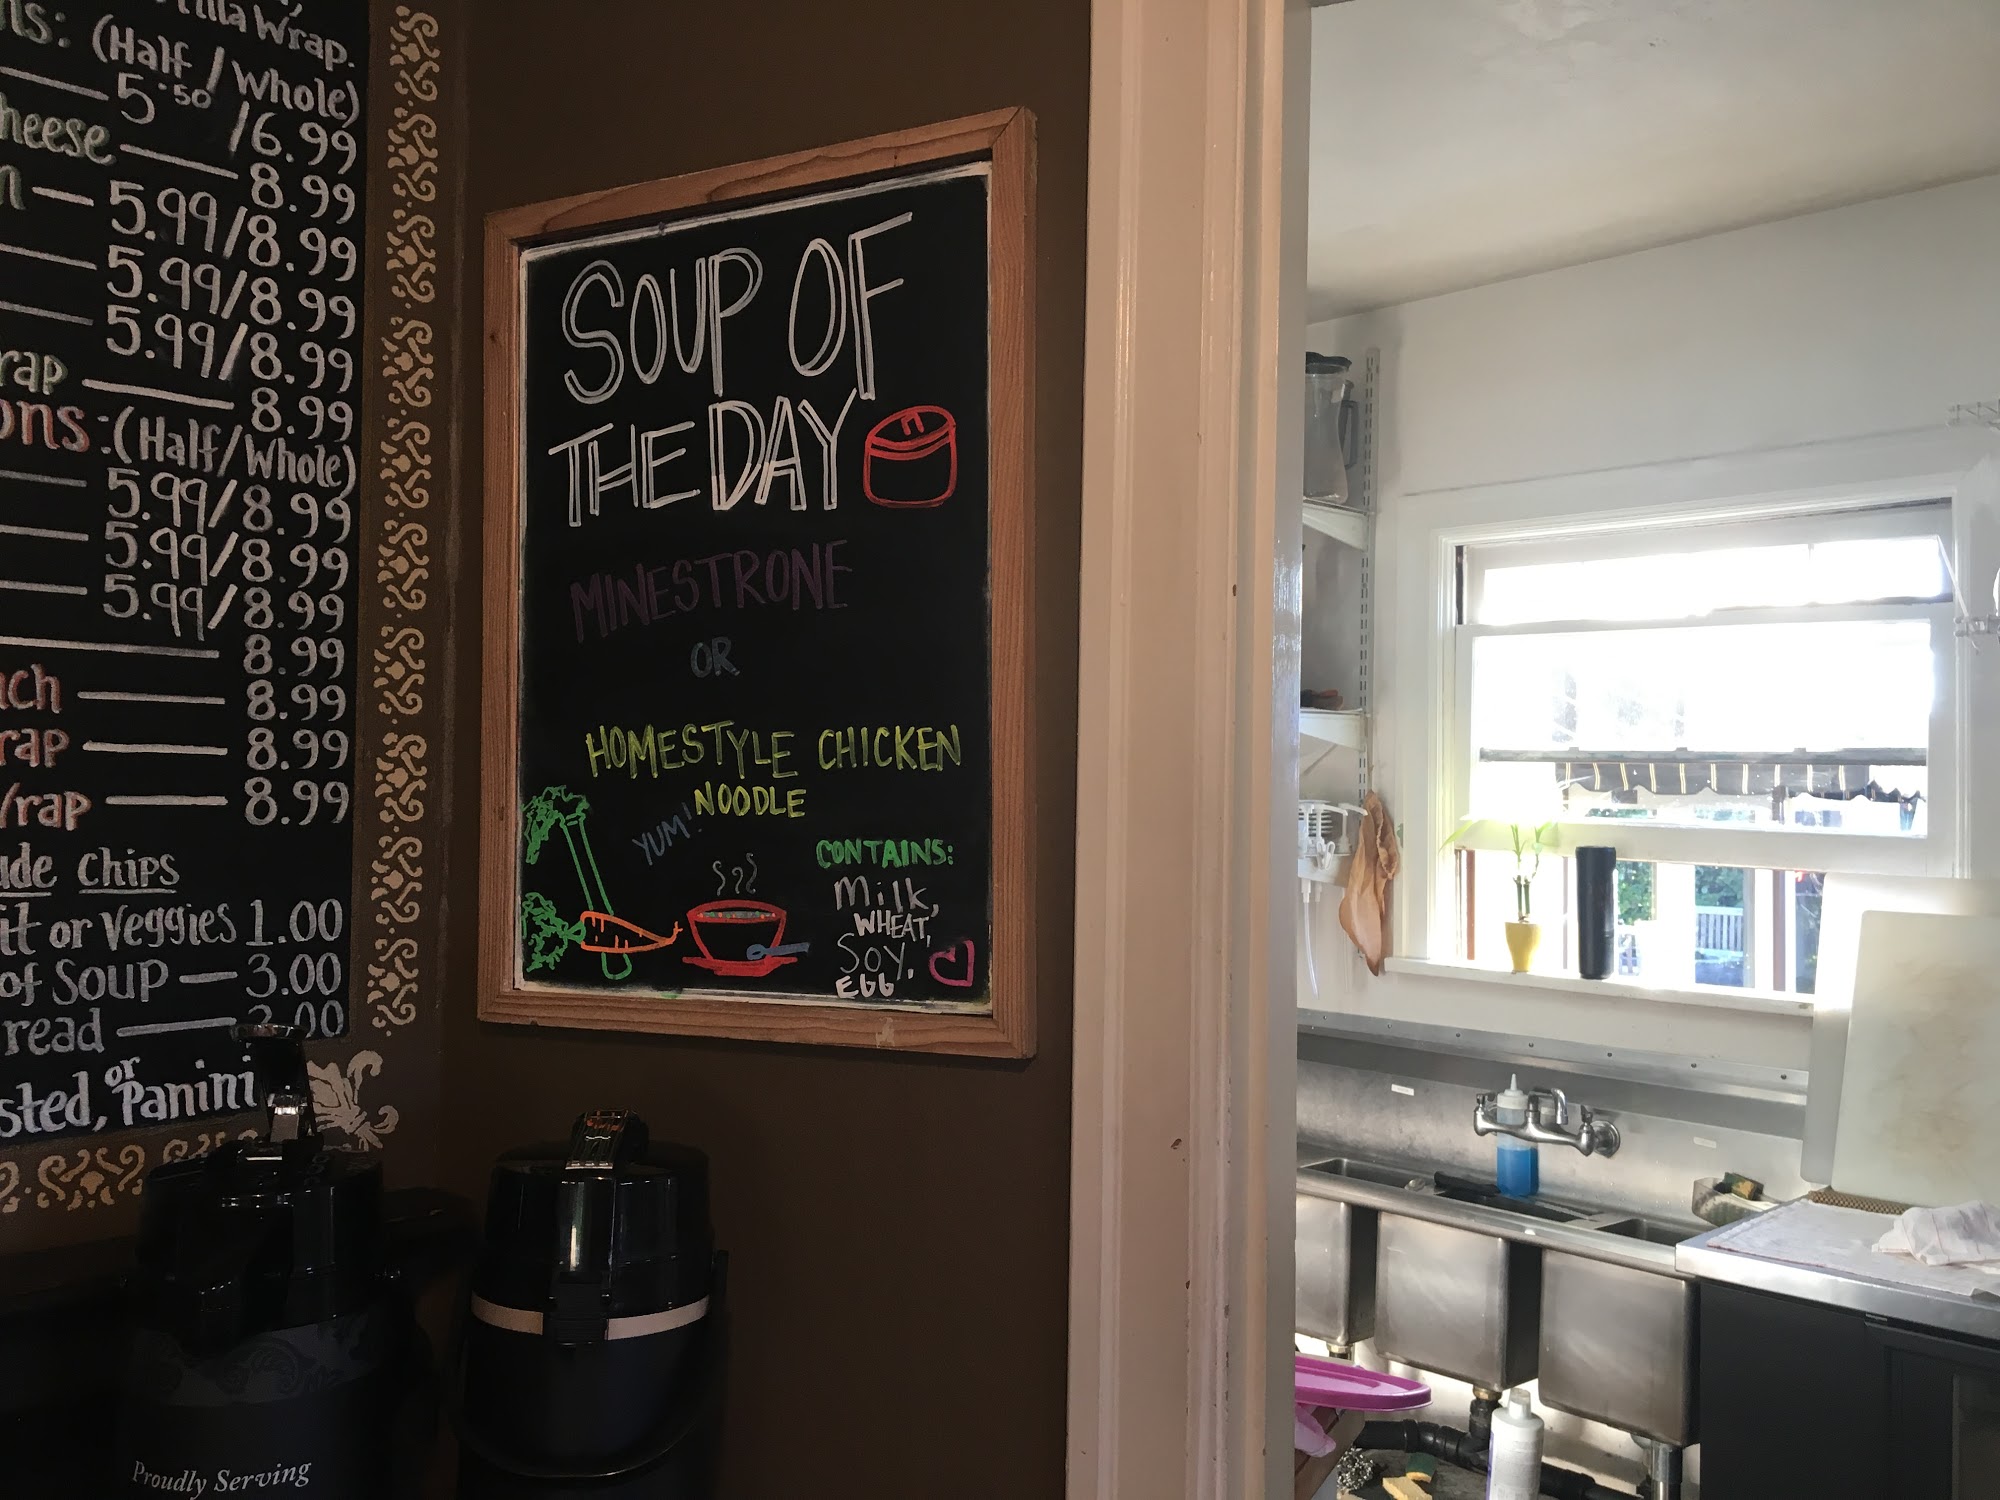 Wrap.
(Half/Whole)
5.50/6.99
8.99
5.99/8.99
5.99/8.99
5.99/8.99
8.99
:(Half/Whole)
5.99/8.99
5.99/8.99
5.99/8.99
8.99
8.99
8.99
8.99
chips
or Veggies 1.00
of Soup 3.00
or Panini
SOUP OF
THE DAY
MINESTRONE
OR
HOMESTYLE CHICKEN
NOODLE
YUM!
CONTAINS:
Milk,
WHEAT,
SOY,
EGG
Proudly Serving